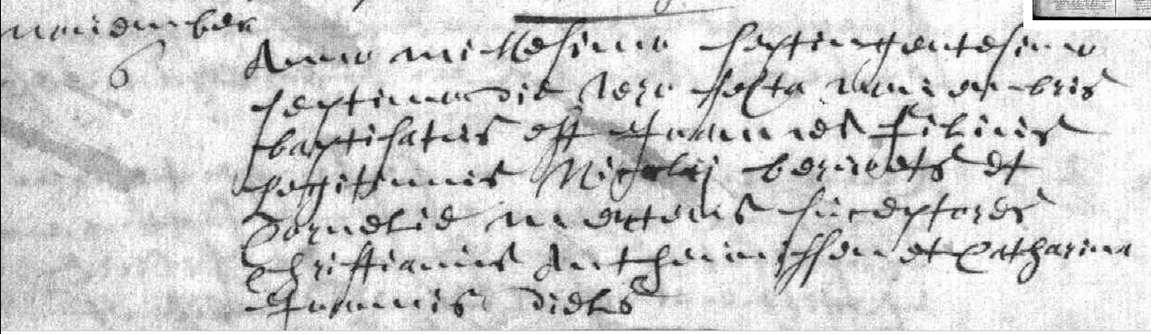 november
6
Anno millesimo septingentesimo
septimo die vero sexta novembris
baptisatus est Joannes filius
legitimus Nicolaij et
Cornelie mertens susceptores
Christianus Anthonissen et Catharina
Joannis diels